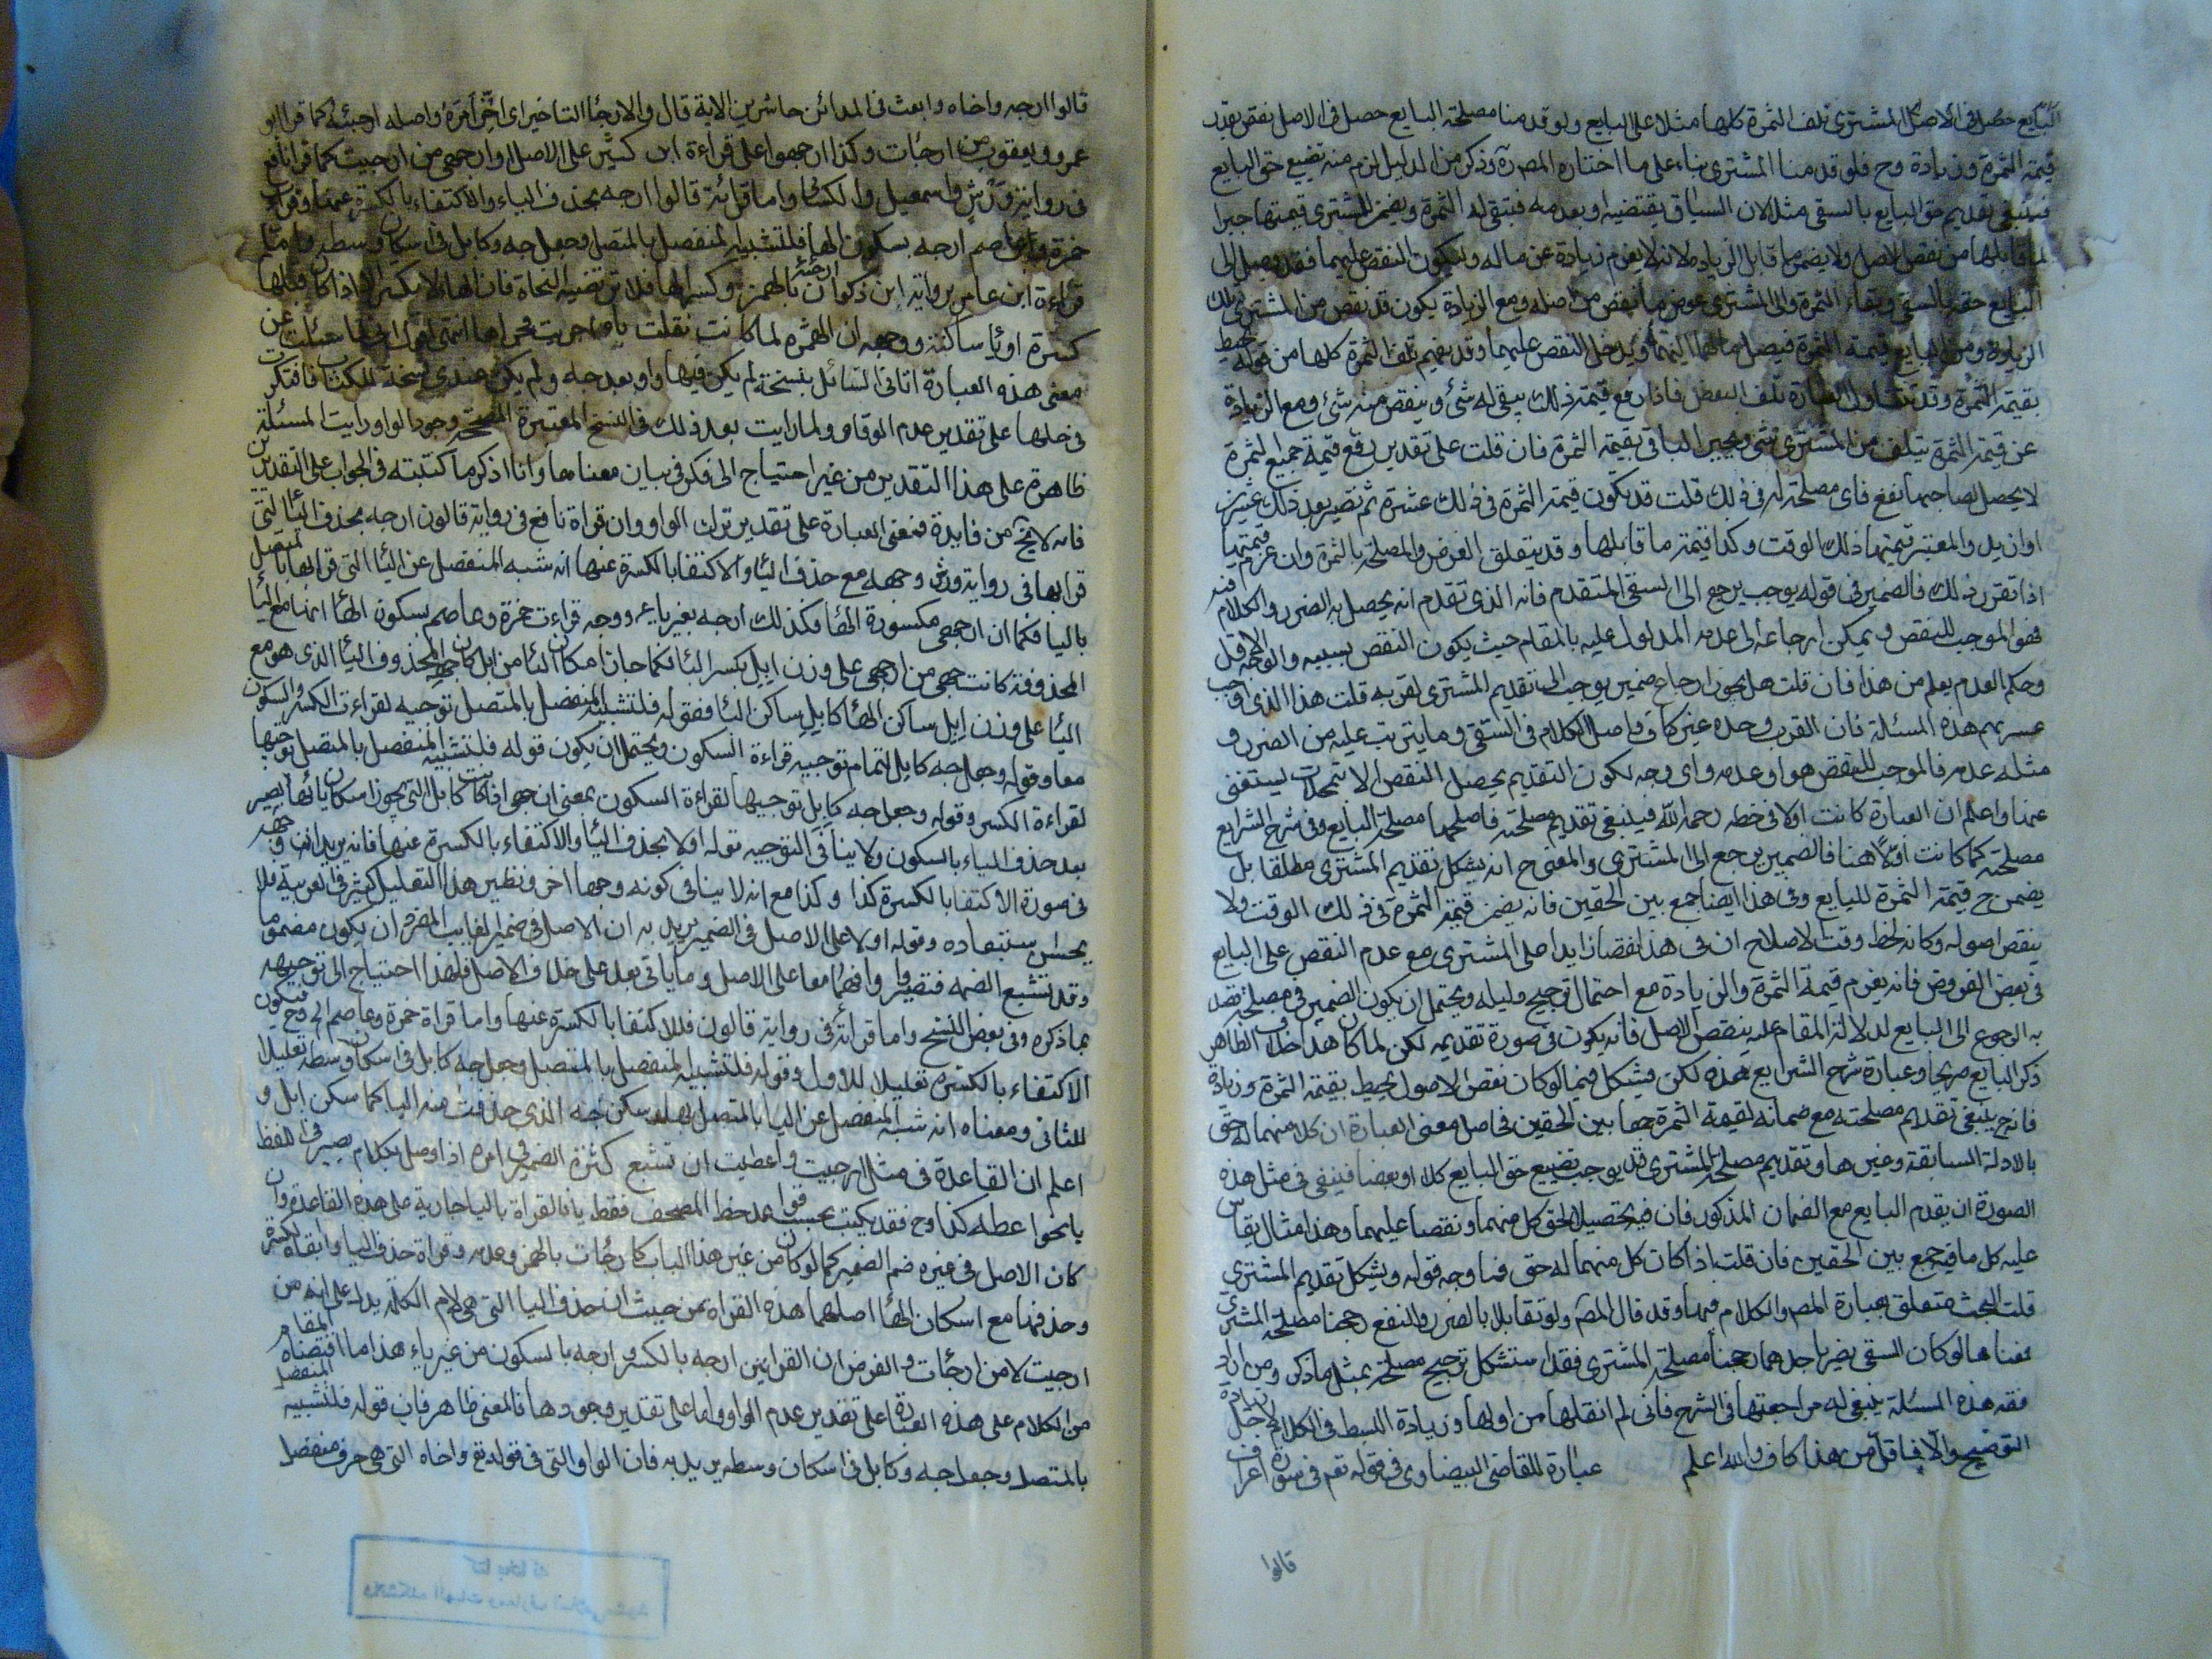 البايع حصل في الاصل المشتري تلف الثمرة كلها مثلا على البايع ولو قدمنا مصلحة البايع حصل في الاصل نقص بقدر
قيمة الثمرة وزيادة وح فلو قدمنا المشتري بناء على ما اختاره المصر وذكر من الدليل لزم منه تضييع حق البايع
فينبغي تقديم حق البايع بالسقي مثلا لان السياق يقتضيه او بعدمه فتبقى له الثمرة ويضمن للمشتري قيمتها جبرا
لما قابلها من نقص الاصل ولا يضمن ما قابل الزيادة لانه لا يغرم زيادة عن ماله وليكون النقص عليهما فقد وصل الى
البايع حقه بالسقي وبقاء الثمرة والى المشتري عوض ما نقص من اصله ومع الزيادة يكون قد نقص من المشتري تلك
الزيادة ومن البايع قيمة الثمرة فيصل اليهما ويدخل النقص عليهما وقد يفهم تلف الثمرة كلها من قوله يحيط
بقيمة الثمرة وقد تلف البعض فاذا رفع قيمة ذلك يبقى له شئ وينقص منه شئ ومع الزيادة
عن قيمة الثمرة يتلف من المشتري شئ ويجبر الباقي بقيمة الثمرة فان قلت على تقدير رفع قيمة جميع الثمرة
لا يحصل لصاحبها نفع فاي مصلحة له في ذلك قلت قد يكون قيمة الثمرة في ذلك عشرة ثم تصير بعد ذلك عشرين
او ازيد والمعتبر قيمتها ذلك الوقت وكذا قيمة ما قابلها وقد يتعلق الغرض والمصلحة بالثمرة وان غرم قيمتها
اذا تقرر ذلك فالضمير في قوله يوجب يرجع الى السقي المتقدم فانه الذي تقدم انه يحصل به الضرر والكلام فيه
فهو الموجب للنقص ويمكن ارجاعه الى عدمه المدلول عليه بالمقام حيث يكون النقص بسببه والوجه
وحكم العدم يعلم من هذا فان قلت هل يجوز ارجاع ضمير يوجب الى تقديم المشتري لقربه قلت هذا الذي اوجب
عسر فهم هذه المسئلة فان القرب وحده غير كاف واصل الكلام في السقي وما يترتب عليه من الضرر و
مثله عدمه فالموجب للنقص هو او عدمه واي وجه لكون التقديم يحصل النقص الا بتمحلات يستغنى
عنها واعلم ان العبارة كانت اولا في خطه رحمه الله فينبغي تقديم مصلحته فاصلحها مصلحة البايع وفي شرح الشرايع
مصلحته كما كانت اولا هنا فالضمير يرجع الى المشتري والمعنى ح انه يشكل تقديم المشتري مطلقا بل
يضمن ح قيمة الثمرة للبايع وفي هذا ايضا جمع بين الحقين فانه يضمن قيمة الثمرة في ذلك الوقت ولا
ينقص اصوله وكانه لحظ وقت الاصلاح ان في هذا نقصا زايدا على المشتري مع عدم النقص على البايع
في بعض الفروض فانه يغرم قيمة الثمرة والزيادة مع احتمال ترجيح دليله ويحتمل ان يكون الضمير في مصلحته قصد
به الرجوع الى البايع لدلالة المقام عليه ينقص الاصل فانه يكون في صورة تقديمه لكن لما كان هذا خلاف الظاهر
ذكر البايع صريحا وعبارة شرح الشرايع هذه لكن يشكل فيما لو كان نقص الاصول يحيط بقيمة الثمرة وزيادة
فانه ح ينبغي تقديم مصلحته مع ضمانه لقيمة الثمرة جمعا بين الحقين فحاصل معنى العبارة ان كلا منهما له حق
بالادلة السابقة وغيرها وتقديم مصلحة المشتري قد يوجب تضييع حق البايع كلا او بعضا فينبغي في مثل هذه
الصورة ان يقدم البايع مع الضمان المذكور فان فيه تحصيلا لحق كل منهما ونقصا عليهما وهذا مثال يقاس
عليه كل ما فيه جمع بين الحقين فان قلت اذا كان كل منهما له حق فما وجه قوله ويشكل تقديم المشتري
قلت البحث متعلق بعبارة المصر والكلام فيها وقد قال المصر ولو تقابلا بالضرر والنفع رجحنا مصلحة المشتري
فمعناها لو كان السقي يضر باحدهما رجحنا مصلحة المشتري فقد استشكل ترجيح مصلحته بمثل ما ذكر ومن اراد زيادة
فقه هذه المسئلة ينبغي له مراجعتها في الشرح فاني لم انقلها من اولها وزيادة البسط في الكلام لاجل
التوضيح والا فاقل من هذا كاف والله اعلم عبارة للقاضي البيضاوي في قوله تع في سورة اعراف
قالوا
قالوا ارجه واخاه وابعث في المدائن حاشرين الاية قال والارجاء التاخير اي اخر امره واصله ارجئه كما قرا ابو
عمرو ويعقوب من ارجات وكذا ارجهوا على قراءة ابن كثير على الاصل او ارجهي من ارجيت كما قرا نافع
في رواية ورش واسمعيل والكسائي واما قرائة قالون ارجه بحذف الياء والاكتفاء بالكسرة عنها وقراءة
حمزة وعاصم ارجه بسكون الها فلتشبيه المنفصل بالمتصل وجعل جه وكابل في اسكان وسطه واما
قراءة ابن عامر برواية ابن ذكوان ارجئه بالهمز وكسر الها فلا يرتضيه النحاة فان الها لا تكسر الا اذا كان قبلها
كسرة او يا ساكنة ووجهه ان الهمزة لما كانت تقلب ياء اجريت مجراها انتهى سئلت عن
معنى هذه العبارة اتاني السائل بنسخة لم يكن فيها واو بعد جه ولم يكن عندي نسخة للكتاب فافتكرت
في حلها على تقدير عدم الواو ولما رايت بعد ذلك في النسخ المعتبرة المصححة وجود الواو رايت المسئلة
ظاهرة على هذا التقدير من غير احتياج الى فكر في بيان معناها وانا اذكر ما كتبته في الجواب على التقديرين
فانه لا يخ من فايدة فمعنى العبارة على تقدير ترك الواو وان قراة نافع في رواية قالون ارجه بحذف اليا التي
قرا بها في رواية ورش وجهه مع حذف اليا والاكتفا بالكسرة عنها انه شبه المنفصل عن اليا التي قرا بها بالمتصل
باليا فكما ان ارجهي مكسورة الها فكذلك ارجه بغير ياء ووجه قراءة حمزة وعاصم بسكون الها انها مع اليا
المحذوفة كانت جهي من ارجهي على وزن ابل بكسر البا فكما جاز اسكان البا من ابل كان جه المحذوف اليا الذي هو مع
اليا على وزن ابل ساكن الها كابل ساكن البا فقوله فلتشبيه المنفصل بالمتصل توجيه لقراءة الكسر والسكون
معا وقوله وجعل جه كابل لتمام توجيه قراءة السكون ويحتمل ان يكون قوله فلتشبيه المنفصل بالمتصل توجيها
لقراءة الكسر وقوله وجعل جه كابل توجيها لقراءة السكون بمعنى ان جهي اذا كانت كابل التي يجوز اسكان بائها يصير
بعد حذف الياء بالسكون ولا ينافي التوجيه قوله اولا بحذف اليا والاكتفاء بالكسرة عنها فانه يريد ان وجهه
في صورة الاكتفا بالكسرة كذا وكذا مع انه لا ينافي كونه وجها اخر ونظير هذا التعليل كثير في العربية فلا
يحسن استبعاده وقوله اولا على الاصل في الضمير يريد به ان الاصل في ضمير الغايب المفرد ان يكون مضموما
وقد تشبع الضمه فتصير واوا فهما معا على الاصل وما ياتي بعد على خلاف الاصل فلهذا احتاج الى توجيهه
بما ذكره وفي بعض النسخ واما قراته في رواية قالون فللاكتفا بالكسرة عنها واما قراة حمزة وعاصم الخ وح فيكون
الاكتفاء بالكسرة تعليلا للاول وقوله فلتشبيه المنفصل بالمتصل وجعل جه كابل في اسكان وسطه تعليلا
للثاني ومعناه انه شبه المنفصل عن اليا بالمتصل بها سكن جه الذي حذفت منه اليا كما سكن ابل و
اعلم ان القاعدة في مثل ارجيت واعطيت ان تشبع كسرة الضمير في امره اذا وصل بكلام يصير في اللفظ
يا نحوا عطه كذا وح فقد يكتب بحسب قواعد خط المصحف فقط يا فالقراة باليا جارية على هذه القاعدة وان
كان الاصل في غيره ضم الضمير كما لو كان من غير هذا الباب كارجات بالهمز وعدمه وقراة حذف اليا وابقاء الكسرة
وحذفها مع اسكان الها اصلهما هذه القراة من حيث ان حذف اليا التي هي لام الكلمة يدل على انه من
ارجيت لا من ارجات والفرض ان القراتين ارجه بالكسر وارجه بالسكون من غير ياء هذا ما اقتضاه المقام
من الكلام على هذه العبارة على تقدير عدم الواو واما على تقدير وجودها فالمعنى ظاهر فان قوله فلتشبيه المنفصل
بالمتصل وجعل جه وكابل في اسكان وسطه يريد به فان الواو التي في قوله تع واخاه التي هي حرف منفصل